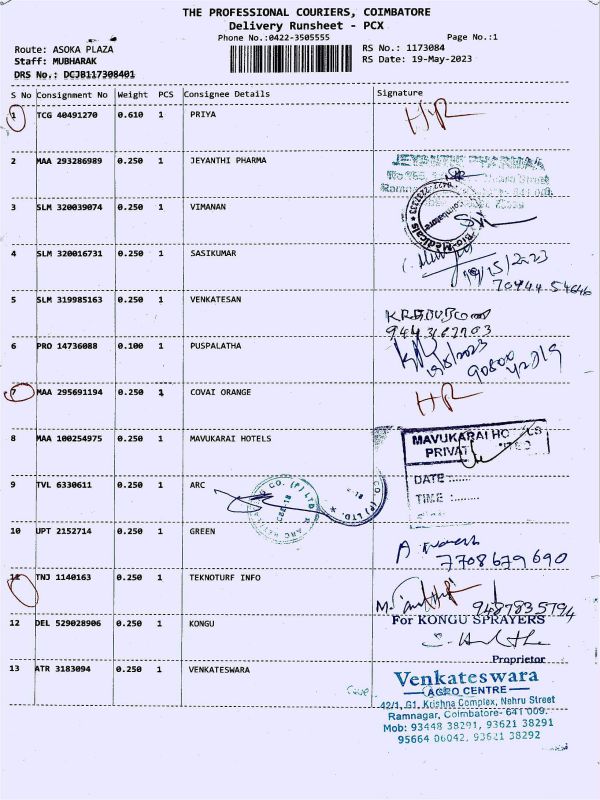 THE PROFESSIONAL COURIERS, COIMBATORE
Delivery Runsheet - PCX
Phone No.:0422-3505555
Page No.:1
Route: ASOKA PLAZA
RS No.: 1173084
Staff: MUBHARAK
RS Date: 19-May-2023
DRS No.: DCJB117308401
S No Consignment No Weight PCS Consignee Details Signature
1 TCG 40491270 0.610 1 PRIYA
2 MAA 293286989 0.250 1 JEYANTHI PHARMA
JEYANTHI PHARMA
3 SLM 320039074 0.250 1 VIMANAN
Bio-Medicals * Coimbatore
4 SLM 320016731 0.250 1 SASIKUMAR
19/5/2023
70944 54646
5 SLM 319985163 0.250 1 VENKATESAN
6 PRO 14736088 0.100 1 PUSPALATHA
7 MAA 295691194 0.250 1 COVAI ORANGE
8 MAA 100254975 0.250 1 MAVUKARAI HOTELS
MAVUKARAI HO LS
PRIVAT ITED
DATE :
TIME :
9 TVL 6330611 0.250 1 ARC
10 UPT 2152714 0.250 1 GREEN
7708679690
11 TNJ 1140163 0.250 1 TEKNOTURF INFO
9487835794
12 DEL 529028906 0.250 1 KONGU
For KONGU SPRAYERS
Proprietor
13 ATR 3183094 0.250 1 VENKATESWARA
Venkateswara
AGRO CENTRE
42/1, G1, Krishna Complex, Nehru Street
Ramnagar, Coimbatore- 641 009.
Mob: 93448 38291, 93621 38291
95664 06042, 93621 38292